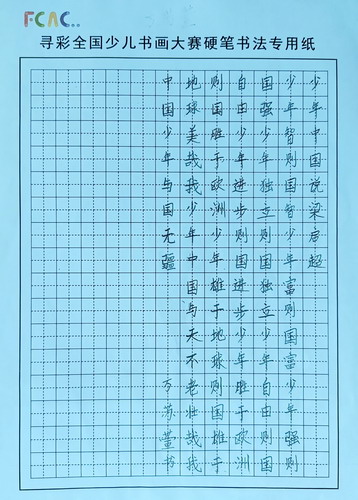 FCAC..
寻彩全国少儿书画大赛硬笔书法专用纸
少年中国说梁启超
少年智则国智少年富则国富少年强则
国强少年独立则国独立少年自由则国
自由少年进步则国进步少年胜于欧洲
则国胜于欧洲少年雄于地球则国雄于
地球美哉我少年中国与天不老壮哉我
中国少年与国无疆 万苏萱书